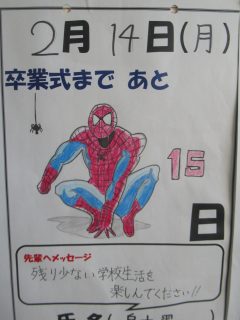 2月14日(月)
卒業式まで あと
15
日
先輩へメッセージ
残り少ない学校生活を
楽しんでください!!
氏名(